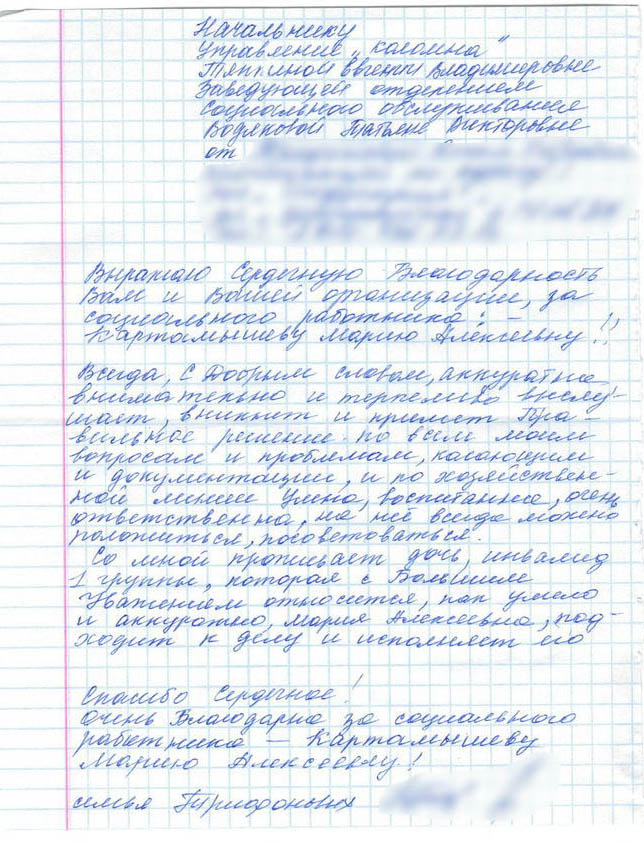 Начальнику
Управление „Коломна"
Тяпкиной Евгении Владимировне
Заведующей отделением
социального обслуживания
Водяковой Татьяне Викторовне
от
Выражаю Сердечную Благодарность
Вам и Вашей организации, за
социального работника: –
Картамышеву Марию Алексеевну!!
Всегда, с Добрым словом, аккуратно
внимательно и терпеливо выслу-
шает, вникнет и примет Пра-
вильное решение по всем моим
вопросам и проблемам, касающим
и документации, и по хозяйствен-
ной линии Умна, воспитанна, очень
ответственна, на неё всегда можно
положиться, посоветоваться.
Со мной проживает дочь, инвалид
1 группы, которая с Большим
Уважением относится, как умело
и аккуратно, Мария Алексеевна, под-
ходит к делу и исполняет его
Спасибо Сердечное!
Очень Благодарна за социального
работника – Картамышеву
Марию Алексеевну!
семья